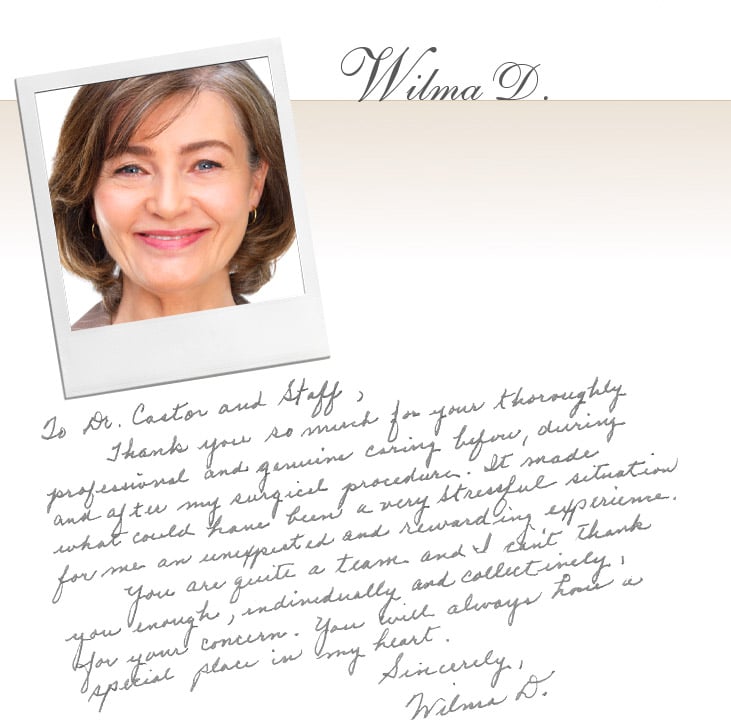 Wilma D.
To Dr. Castor and Staff,
Thank you so much for your thoroughly
professional and genuine caring before, during
and after my surgical procedure. It made
what could have been a very stressful situation
for me an unexpected and rewarding experience.
You are quite a team and I can't thank
you enough, individually and collectively,
for your concern. You will always have a
special place in my heart.
Sincerely,
Wilma D.